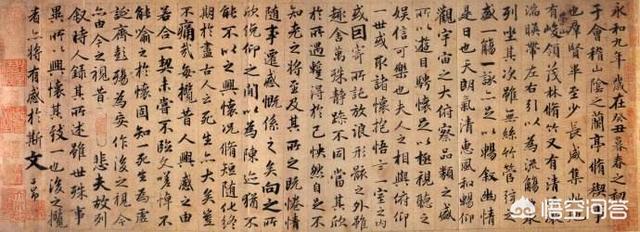 永和九年歲在癸丑暮春之初
于會稽山陰之蘭亭脩禊事
也羣賢畢至少長咸集此
有峻領茂林脩竹又有清
湍暎帶左右引以為流觴
列坐其次雖無絲竹管弦之
盛一觴一詠亦足以暢叙幽情
是日也天朗氣清惠風和暢仰
觀宇宙之大俯察品類之盛
所以遊目騁懷足以極視聽之
娛信可樂也夫人之相與俯仰
一世或取諸懷抱悟言一室之內
或因寄所託放浪形骸之外雖
趣舍萬殊靜躁不同當其欣
於所遇蹔得於己怏然自足不
知老之將至及其所之既惓情
隨事遷感慨係之矣向之所
欣俛仰之閒以為陳迹猶不
能不以之興懷況脩短隨化終
期於盡古人云死生亦大矣豈
不痛哉每攬昔人興感之由
若合一契未嘗不臨文嗟悼不
能喻之於懷固知一死生為虛
誕齊彭殤為妄作後之視今
亦由今之視昔悲夫故列
叙時人錄其所述雖世殊事
異所以興懷其致一也後之攬
者亦將有感於斯文
悟空问答